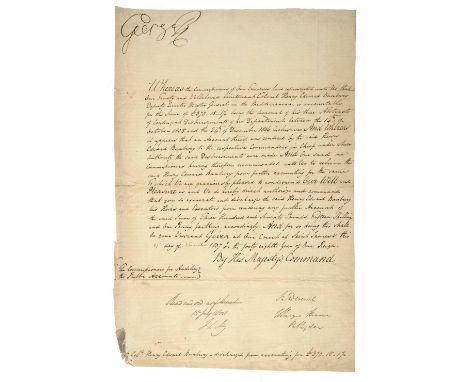 George R
Whereas the Commissioners of Our Treasury have represented unto Us that
Our Trusty and Wellbeloved Lieutenant Colonel Henry Edward Bunbury
Deputy Quarter Master General in the Mediterranean, is accountable
for the Sum of £370.15.1½ being the amount of his three Abstracts
of Contingent Disbursements of his Department between the
October 1805 and the 24th of December 1806 inclusive And Whereas
it appears that an Account thereof was rendered by the said Henry
Edward Bunbury to the respective Commanders in Chief under whose
authority the said Disbursements were made And Our said
Commissioners having therefore recommended unto Us to release the
said Henry Edward Bunbury from further accounting for the same
to which We are graciously pleased to condescend Our Will and
Pleasure is and We do hereby direct authorize and command
that you do exonerate and discharge the said Henry Edward Bunbury
his Heirs and Executors from rendering any further Account of
the said Sum of Three Hundred and Seventy Pounds Fifteen Shillings
and One Penny farthing accordingly. And for so doing this shall
be your Warrant Given at Our Court at Saint James's this
day of 1807 in the forty eighth Year of Our Reign.
By His Majesty's Command
To The Commissioners for Auditing
the Public Accounts
Lt Coll. Henry Edward Bunbury discharged from accounting for £370.15.1½